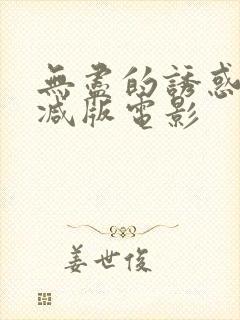 無盡的誘惑
減版電影
姜世俊